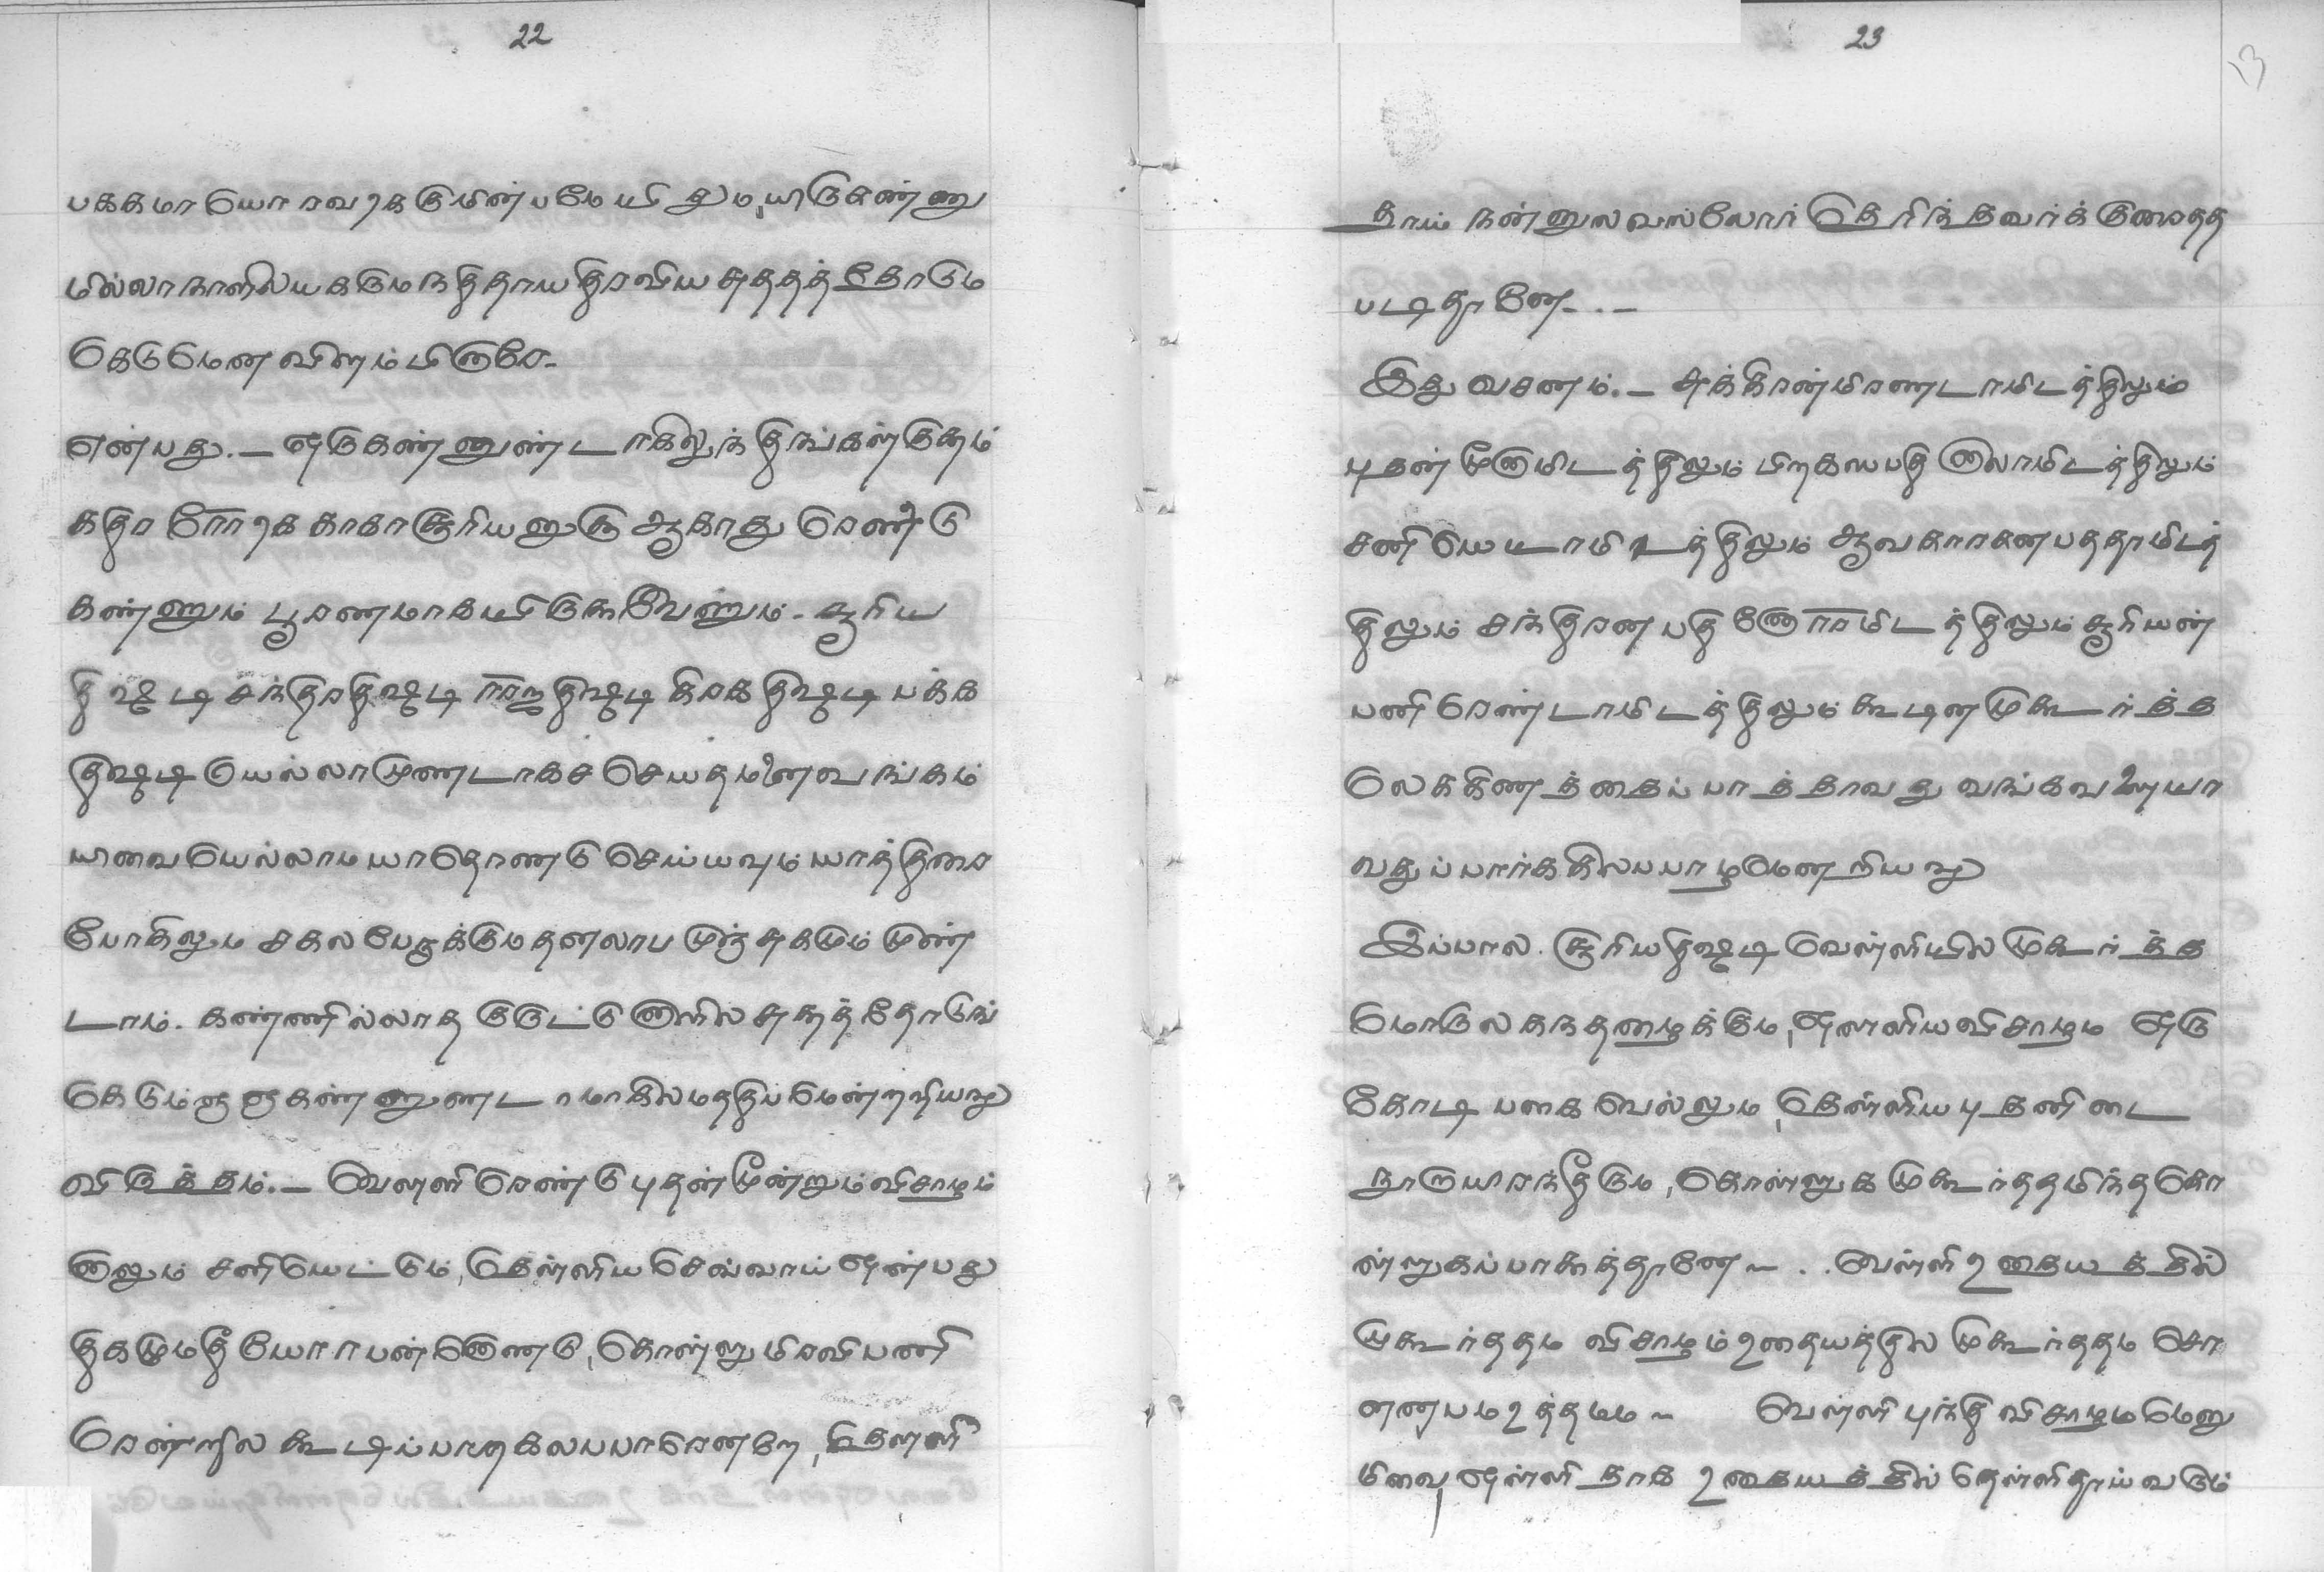 22
பககமாயோரவர்க குமின்பமேயி தும,யிருகண்ணு
மில்லாநாளிலயககுமநத்திதாயதிரவிய சுததத்தோடும
கெடுமென விளம்பினாரே-
என்பது.— ஒருகண்ணுண்டாகிலுந் திங்கள்
சூரியனுகு ஆகாது ரெண்டு
கண்ணும் பூரணமாகயிருகவேணும்- சூரிய
திஷ்டி சந்திரதிஷ்டி ராஜதிஷ்டி கிரகதிஷ்டி பக்க
திஷ்டி யெல்லாமுணடாகச செயதமனை வங்கம்
யிவையெல்லாம யாதொணடு செய்யவும் யாத்திரை
போகிலும சகல பேருக்கும தனலாப முஞ்சுகமும் முண்
டாம். கண்ணில்லாத குருட்டு னாளில சுகத்தோடுங்
கெடும் ஒருகண்ணுணடாமாகில மததிபமென்றறியவு
விருத்தம்.— வெளளி ரெண்டு புதன்மூன்றும் விசாழம்
னாலும் சனியெட்டும், தெள்ளிய செவ்வாய் ஒன்பது
திகழும்தீயோராபன்னொணடு, கொள்ளுமிரவிபனி
ரெண்டில கூடிப்பாரகிலபபாரெனறே, தெளளி
23
தாய் நன்னுலவல்லோர் தெரிந்தவர்க் குரைதத
படிதானே-.—
இது வசனம்.— சுக்கிரன்மிரணடாமிடத்திலும்
புதன் மூனாமிடத்திலும் பிறகஸபதி னாலாமிடத்திலும்
சனியெடாமிடத்திலும் அவகாரகன பததாமிடத்
திலும் சந்திரன பதினோராமிடத்திலும் சூரியன்
பனிரெண்டாமிடத்திலும் கூடின முகூர்த்த
லெககினத்தைப் பாத்தாவது வங்கவளையா
வதுப்பார்ககிலபபாழமென றியவு
இப்பால. சூரியதிஷ்டி வெள்ளியில முகூர்த்த
மொருலகநதழைக்கும, ஒளளிய விசாழம ஒரு
கோடி பகை வெல்லும, தெள்ளிய புதனிடை
நூருயிரந்தீரும, கொள்ளுக முகூர்ததமிந்தகோ
ள்ளுகப்பாகத்தானே—.. வெள்ளி உதையத்தில்
முகூர்ததம விசாழம் உதையத்தில முகூர்ததம சோ
னனபம உத்தமம— வெள்ளி புந்தி விசாழமமெனு
மிவை, ஒள்ளி தாக உதையத்தில் தெள்ளிதாய் வரும்